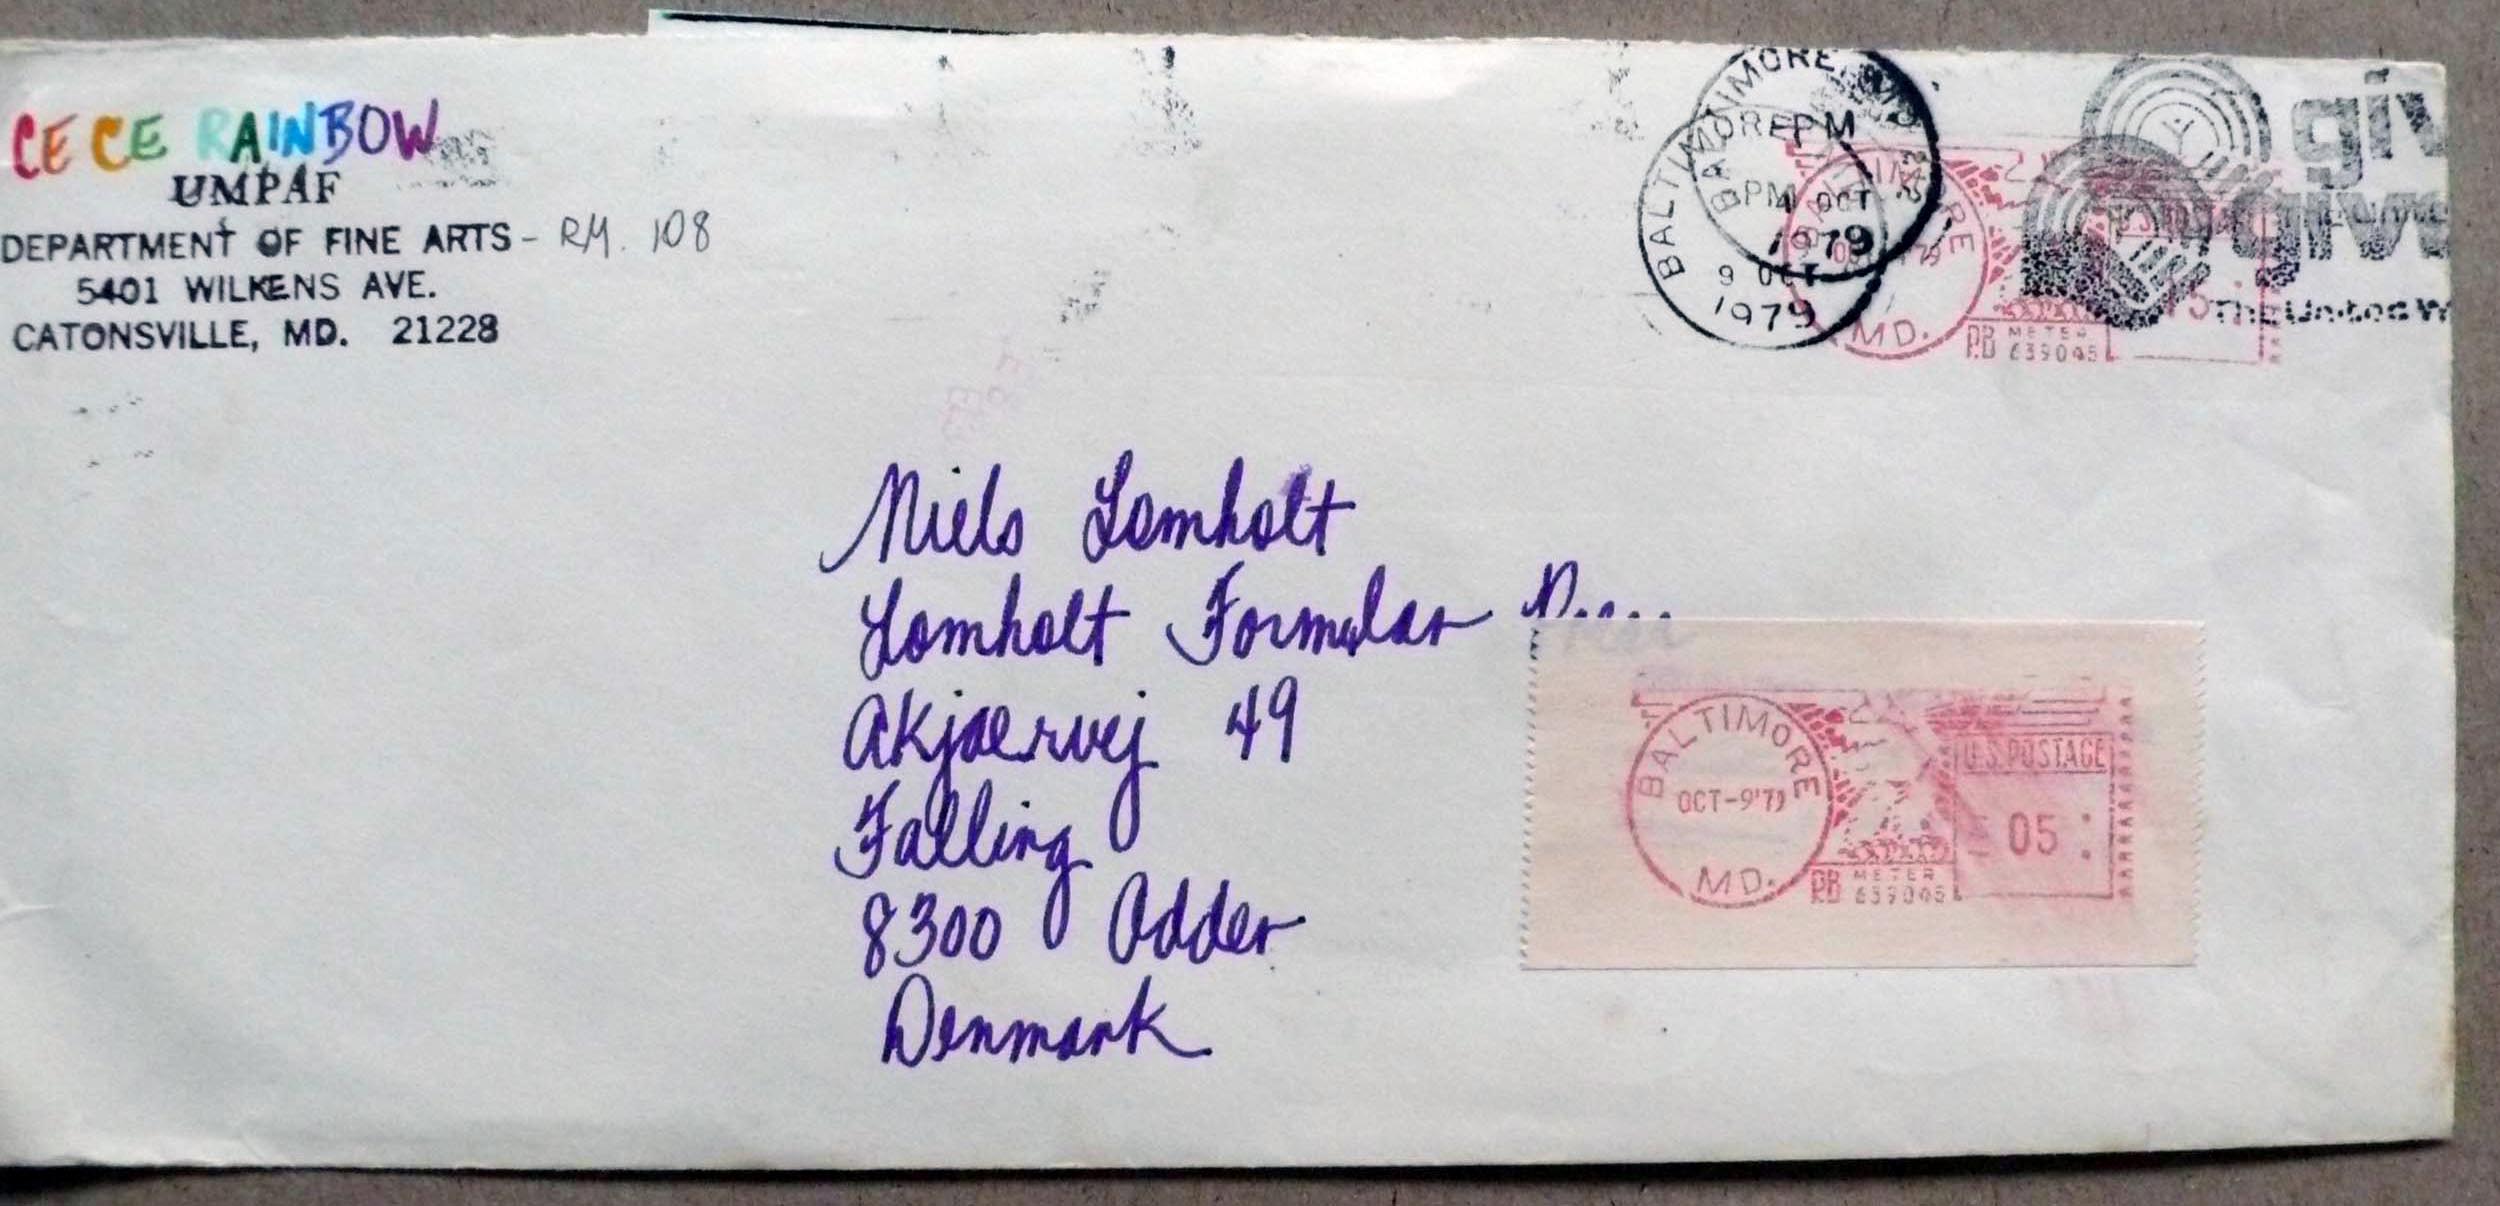 CE CE RAINBOW
UMPAF
DEPARTMENT OF FINE ARTS - RM. 108
5401 WILKENS AVE.
CATONSVILLE, MD. 21228
BALTIMORE, MD
PM
4 OCT
1979
BALTIMORE
PM
9 OCT
1979
MD.
PB METER
639045
giv
The United W
Niels Lomholt
Lomholt Formular
Akjaervej 49
Falling
8300 Odder
Denmark
BALTIMORE
OCT-9'79
MD.
PB METER
639045
U.S. POSTAGE
05